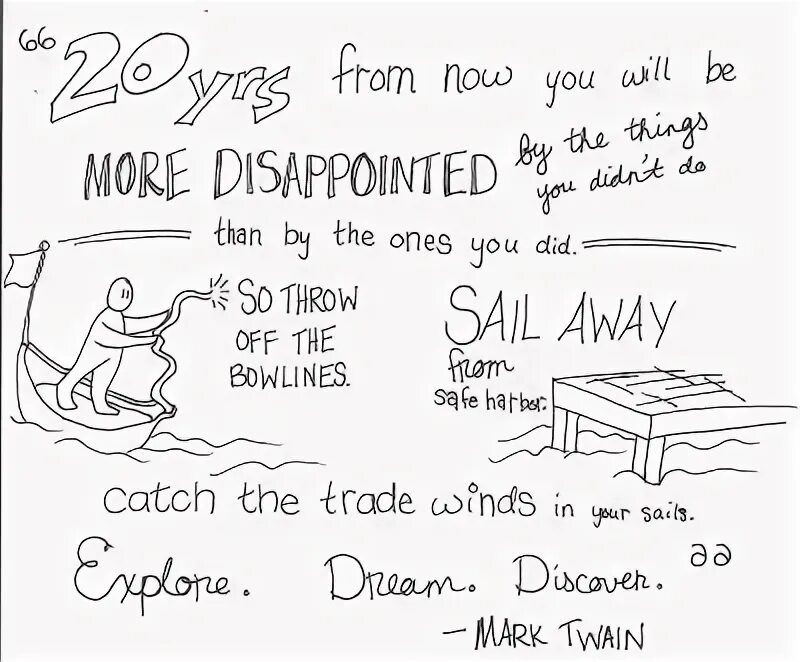 “20 yrs from now you will be
MORE DISAPPOINTED by the things
you didn't do
than by the ones you did.
SO THROW
OFF THE
BOWLINES.
SAIL AWAY
from
safe harbor.
catch the trade winds in your sails.
Explore. Dream. Discover.”
— MARK TWAIN